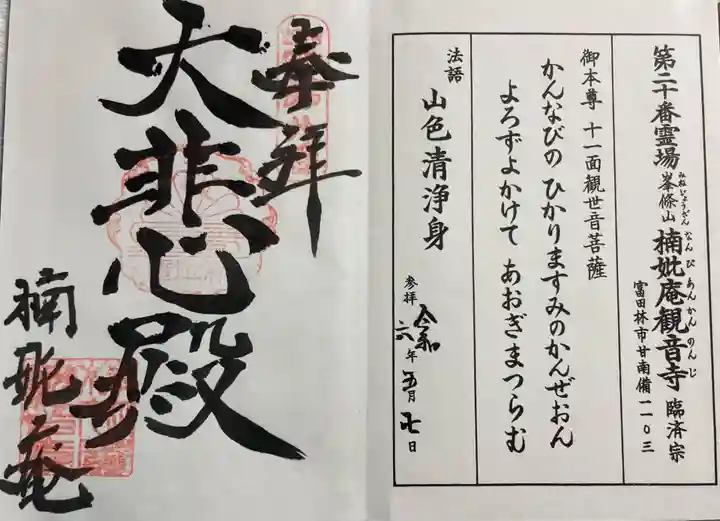 第二十番霊場 峯條山 楠妣庵観音寺 臨済宗
みねじょうざん なんぴあんかんのんじ
富田林市甘南備一一〇三
御本尊 十一面観世音菩薩
かんなびの ひかりますみのかんぜおん
よろずよかけて あおぎまつらむ
法語 山色清浄身
参拝 令和六年五月七日
奉拝
大悲心殿
楠妣庵